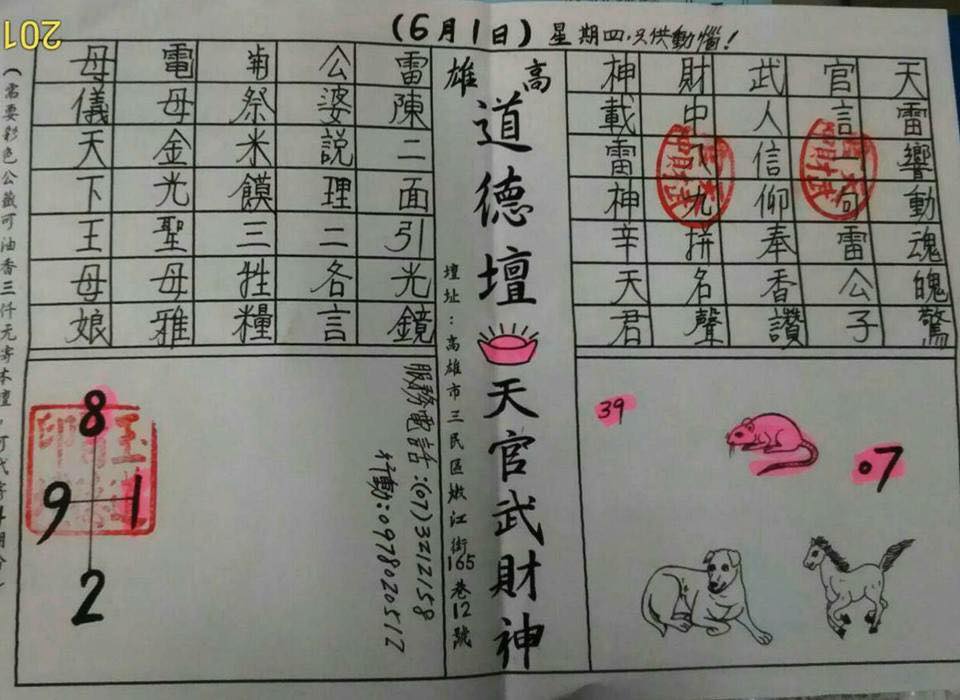 (6月1日) 星期四.只供動惱!
201
天雷響動魂魄驚
官言一句雷公子
武人信仰奉香讚
財中八九拼名聲
神載雷神辛天君
39
07
高雄
道德壇 天官武財神
壇址:高雄市三民區嫩江街165巷12號
雷陳二面引光鏡
公婆說理二各言
菊祭米饃三牲糧
電母金光聖母雅
母儀天下王母娘
服務電話:(07)3212158
行動:0978020517
8
9 1
2
(需要彩色公籤可油香三仟元寄本壇,可代寄